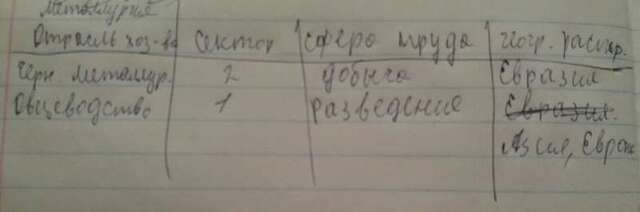 Металлургия
Отрасль хоз-ва сектор сфера труда геогр. распр.
Черн. металлур. 2 добыча Евразия
Овцеводство 1 разведение Евразия.
Азия, Европ